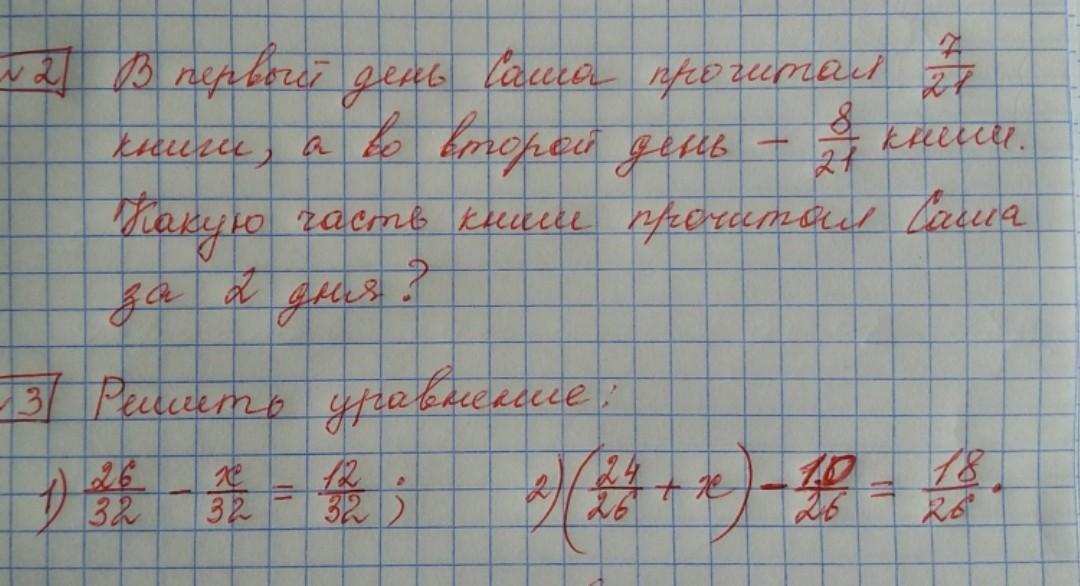 №2 В первый день Саша прочитал 7/21
книги, а во второй день – 8/21 книги.
Какую часть книги прочитал Саша
за 2 дня?
№3 Решить уравнение:
1) 26/32 - x/32 = 12/32; 2) (24/26 + x) - 10/26 = 18/26.